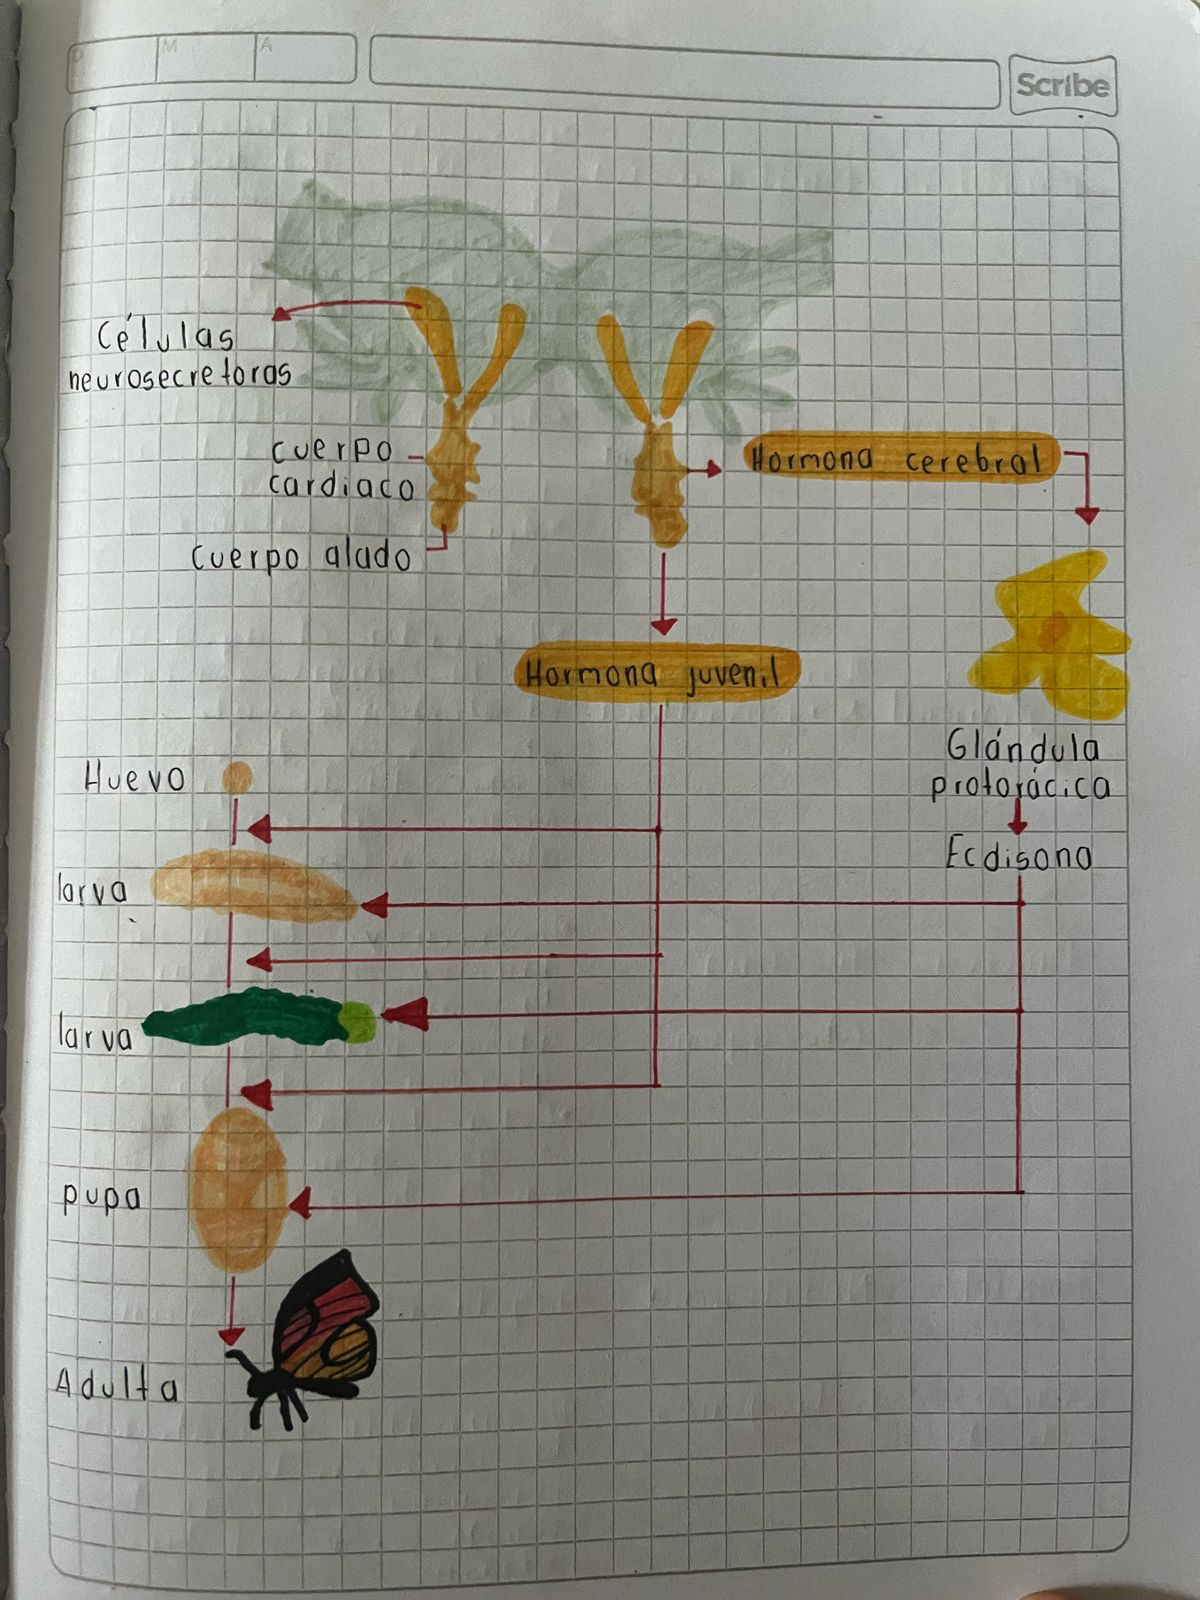 D M A
Scribe
Células
neurosecretoras
cuerpo
cardiaco
cuerpo alado
Hormona cerebral
Hormona juvenil
Glándula
protorácica
Ecdisona
Huevo
larva
larva
pupa
Adulta